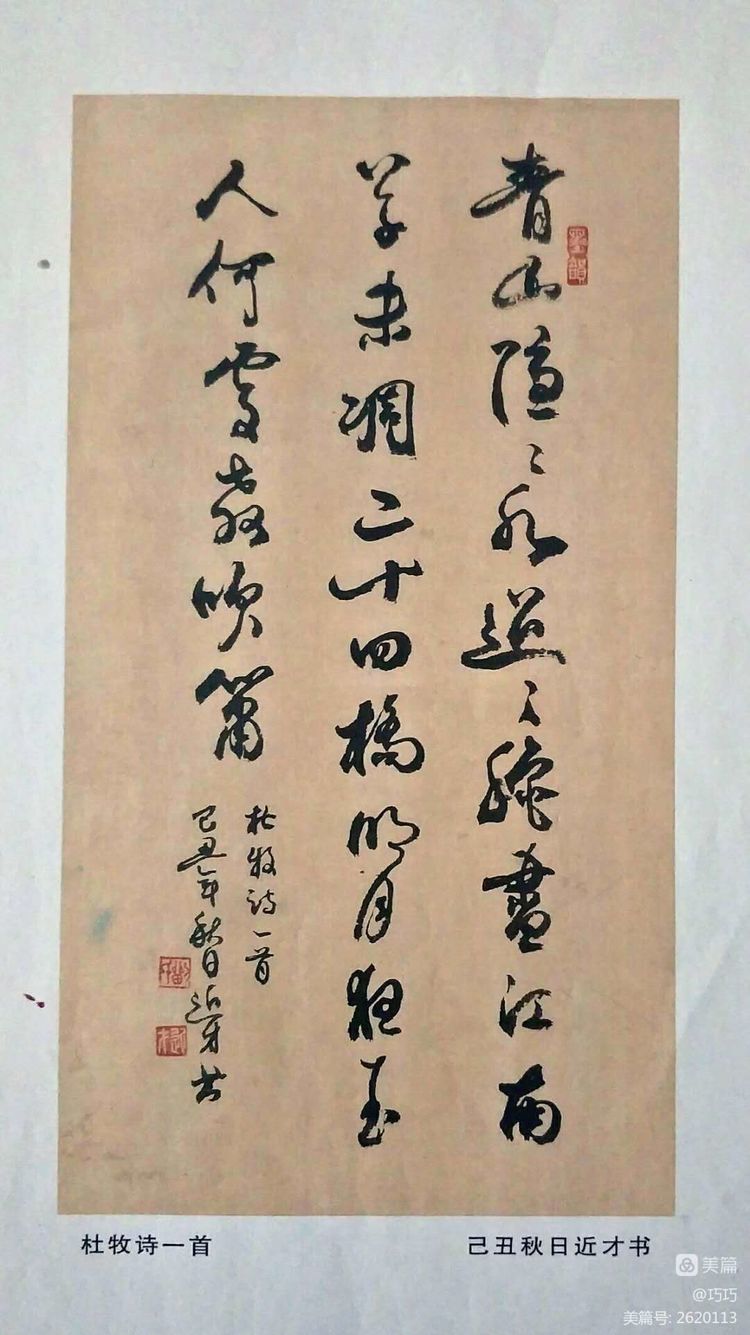 青山隐〻水迢〻秋盡江南
草未凋二十四橋明月夜玉
人何處教吹簫
杜牧诗一首
己丑年秋日近才书
杜牧诗一首
己丑秋日近才书
美篇
@巧巧
美篇号: 2620113